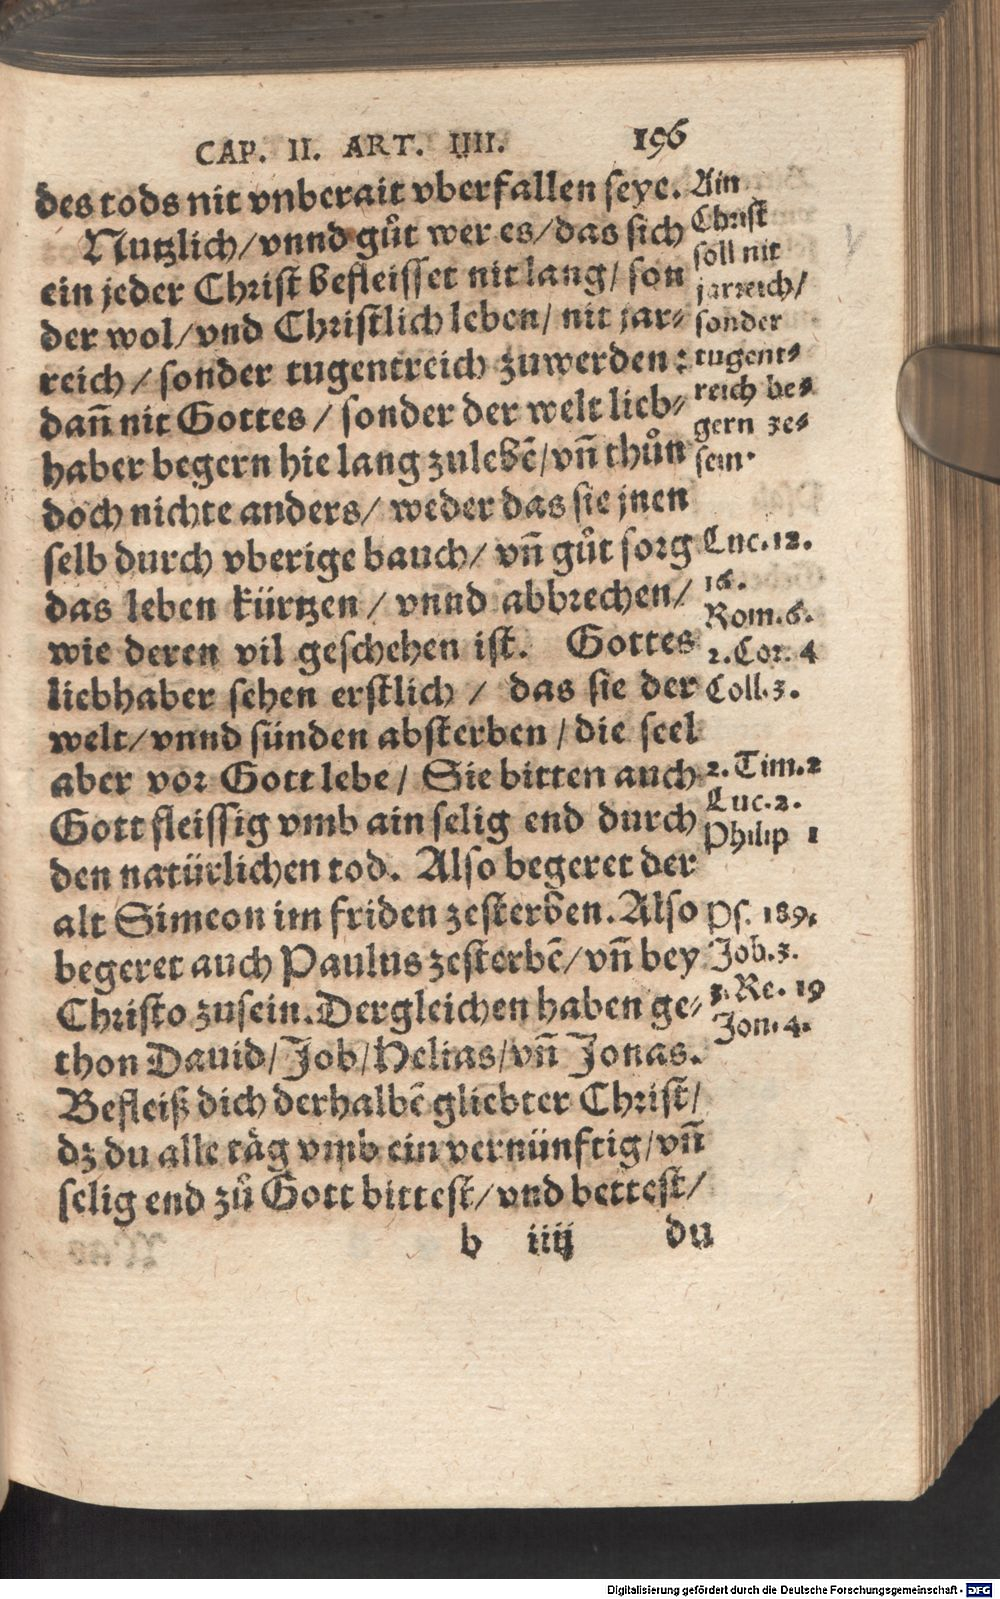 CAP. II. ART. IIII. 196
des tods nit vnberait vberfallen seye.
Nutzlich/vnnd gůt wer es/das sich
ein jeder Christ befleisset nit lang/ son
der wol/vnd Christlich leben/ nit jar⸗
reich/sonder tugentreich zuwerden:
dañ nit Gottes/sonder der welt lieb⸗
haber begern hie lang zulebẽ/vñ thůn
doch nichte anders/ weder das sie jnen
selb durch vberige bauch/ vñ gůt sorg
das leben kürtzen/vnnd abbrechen/
wie deren vil geschehen ist. Gottes
liebhaber sehen erstlich/ das sie der
welt/vnnd sünden absterben/die seel
aber vor Gott lebe/ Sie bitten auch
Gott fleissig vmb ain selig end durch
den natürlichen tod. Also begeret der
alt Simeon im friden zesterben. Also
begeret auch Paulus zesterbẽ/vñ bey
Christo zusein. Dergleichen haben ge⸗
thon Dauid/Job/Helias/vñ Jonas.
Befleiß dich derhalbẽ gliebter Christ/
dz du alle täg vmb ein vernünftig/vñ
selig end zů Gott bittest/vnd bettest/
b iiij du
Ain
Christ
soll nit
jarreich/
sonder
tugent⸗
reich be⸗
gern ze⸗
sein.
Luc.12.
16.
Rom.6.
2.Cor.4
Coll.3.
2.Tim.2
Luc.2.
Philip 1
Ps.189.
Job.3.
3.Re.19
Jon.4.
Digitalisierung gefördert durch die Deutsche Forschungsgemeinschaft - DFG